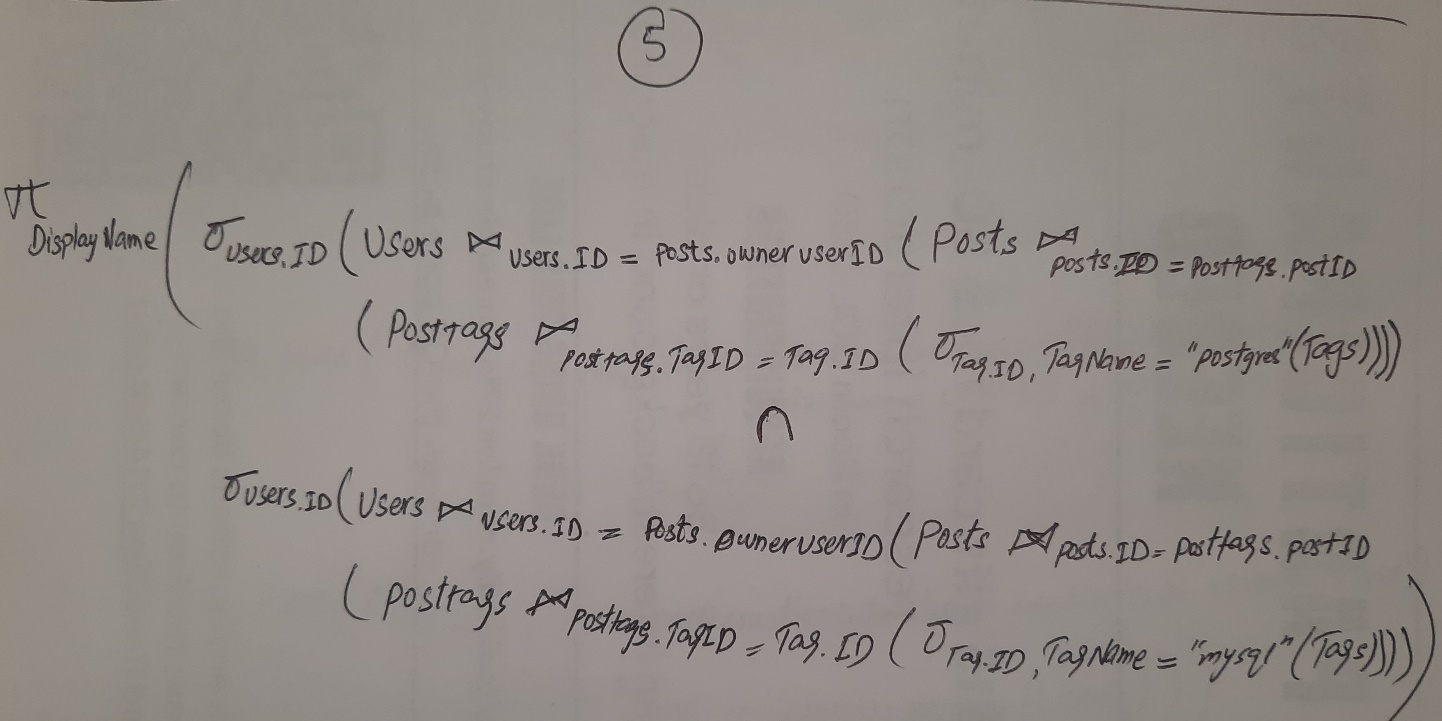 5
π DisplayName ( σ Users.ID ( Users ⋈ Users.ID = Posts.owneruserID ( Posts ⋈ posts.ID = Posttags.postID
( Posttags ⋈ posttags.TagID = Tag.ID ( σ Tag.ID, TagName = "postgres" (Tags))))
∩
σ users.ID ( Users ⋈ users.ID = Posts.owneruserID ( Posts ⋈ posts.ID = posttags.postID
( posttags ⋈ posttags.TagID = Tag.ID ( σ Tag.ID, TagName = "mysql" (Tags)))) )